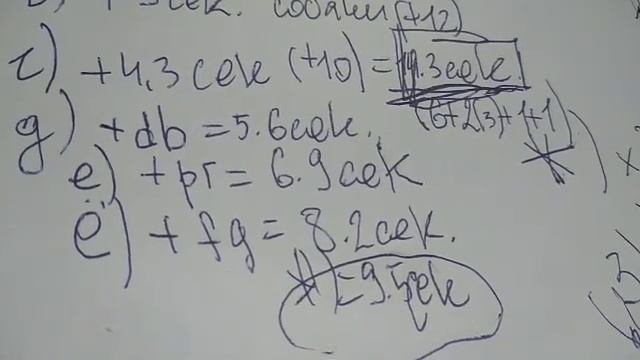 сек. собаки (+12)
г) +4,3 сек (+10) = 19.3 сек.
(6+2(3)+1+1)
g) + db = 5.6 сек.
е) + pr = 6.9 сек
ё) + fg = 8.2 сек.
= 9.5 сек